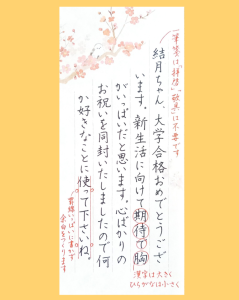 一筆箋は「拝啓」「敬具」は不要です
結月ちゃん、大学合格おめでとうござ
います。新生活に向けて期待で胸
がいっぱいだと思います。心ばかりの
お祝いを同封いたしましたので何
か好きなことに使って下さいね。
漢字は大きく
ひらがなは小さく
余白をつくります